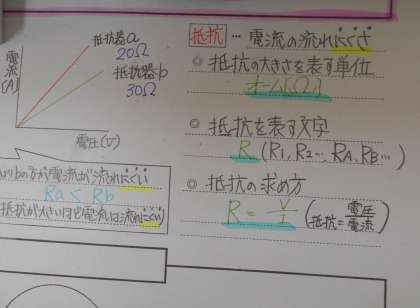 電流[A]
抵抗器a
20Ω
抵抗器b
30Ω
電圧(V)
bの方が電流が流れにくい
Ra < Rb
抵抗が大きいほど電流は流れにくい
抵抗 … 電流の流れにくさ
◎ 抵抗の大きさを表す単位
オーム(Ω)
◎ 抵抗を表す文字
R (R1, R2… RA, RB…)
◎ 抵抗の求め方
R = V/I (抵抗 = 電圧/電流)